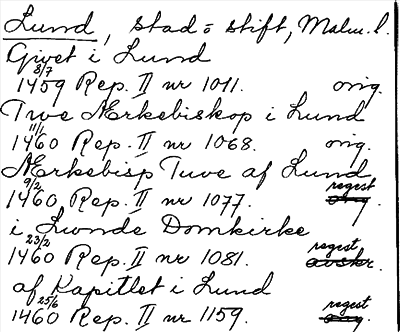 Lund, stad o stift, Malm. l.
Givet i Lund
8/7 1459 Rep. II nr 1011. orig.
Tuve Ærkebiskop i Lund
11/1 1460 Rep. II nr 1068. orig.
Ærkebisp Tuve af Lund
9/2 1460 Rep. II nr 1077. regest orig.
i Lunde Domkirke
23/2 1460 Rep. II nr 1081. regest avskr.
af Kapitlet i Lund
25/6 1460 Rep. II nr 1159. regest orig.